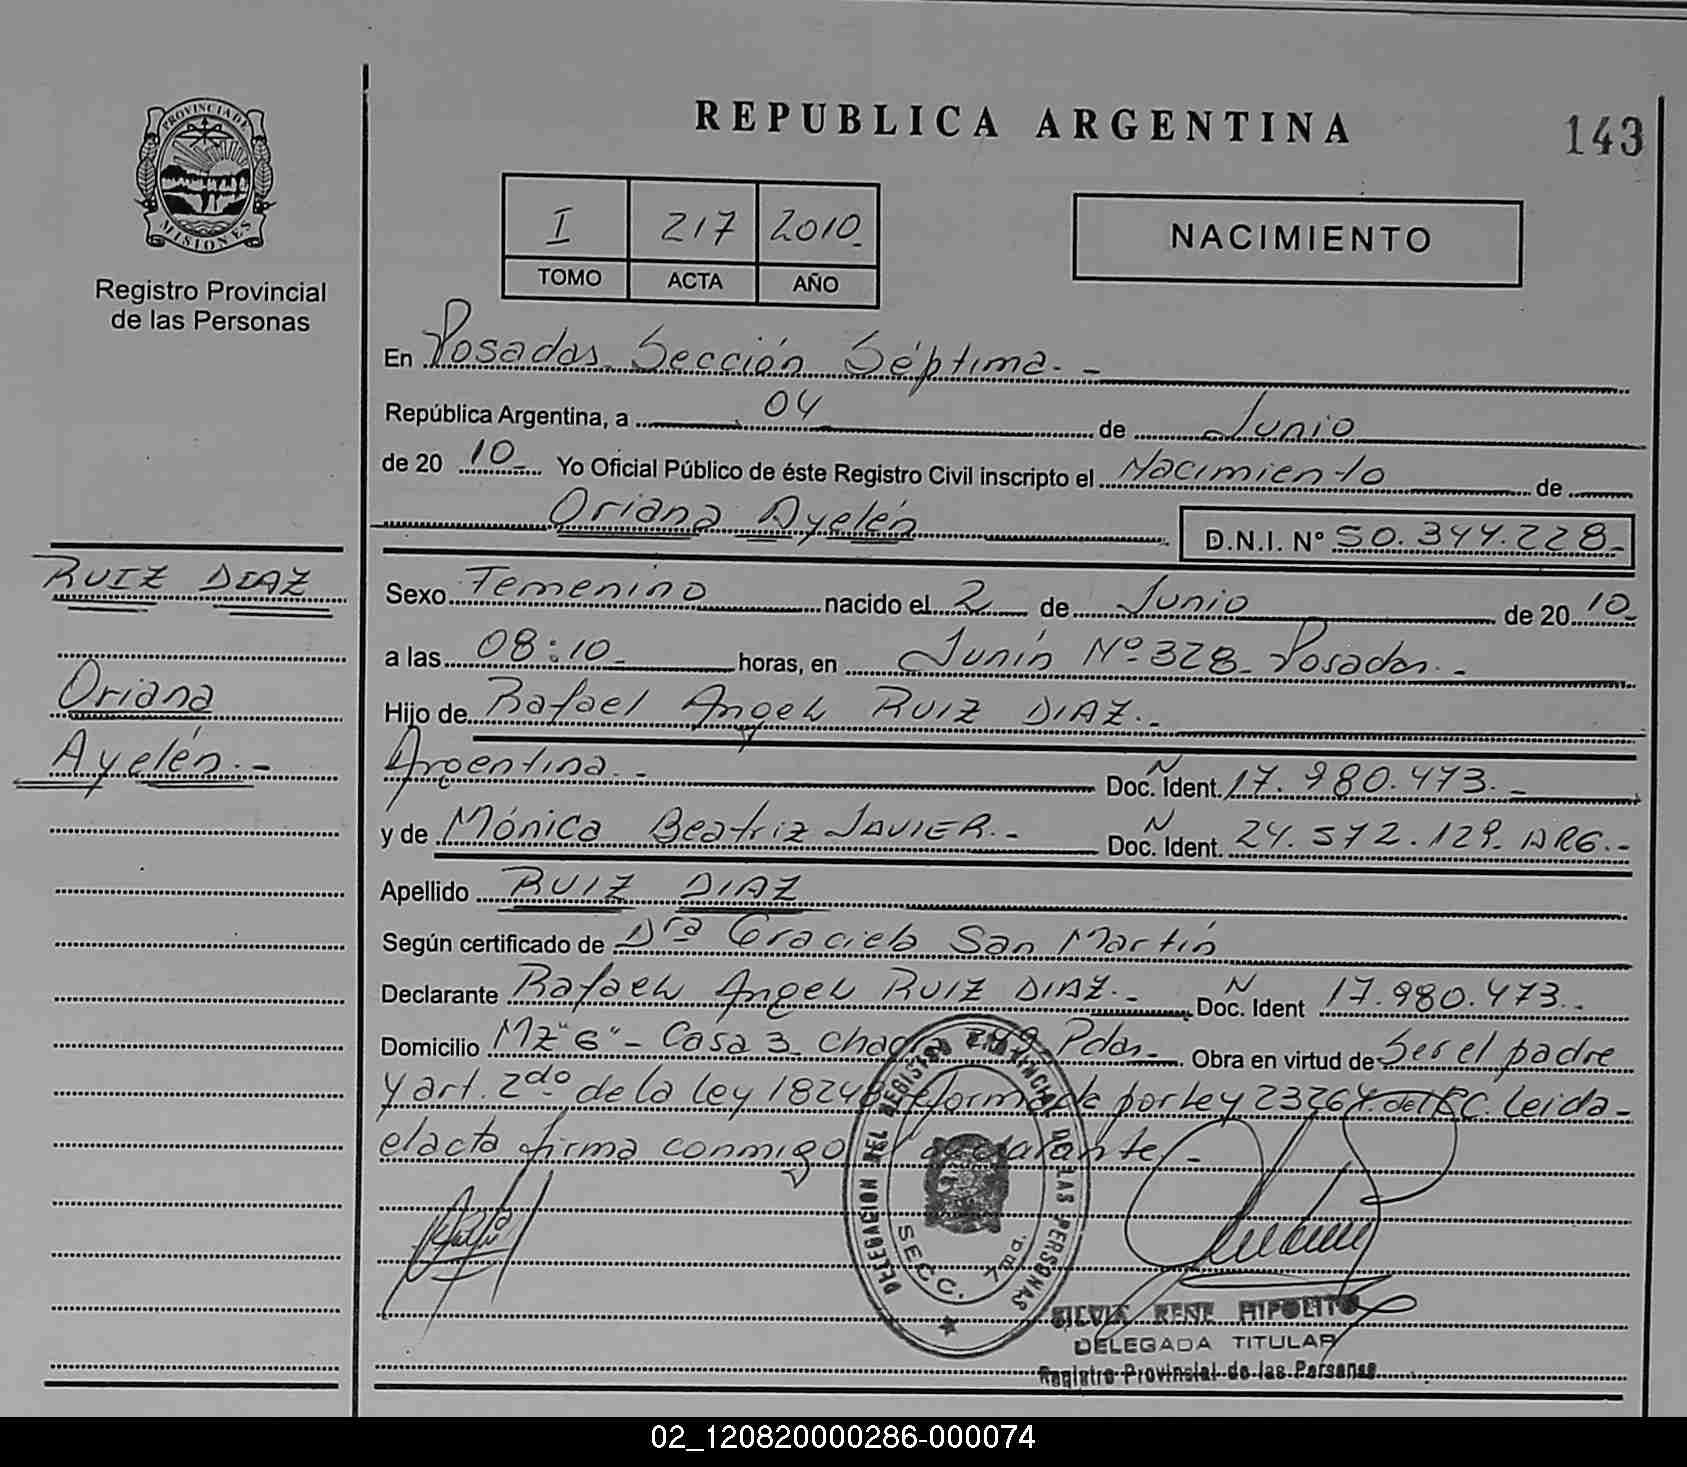 REPUBLICA ARGENTINA
143
PROVINCIA DE
MISIONES
Registro Provincial
de las Personas
I 217 2010
TOMO ACTA AÑO
NACIMIENTO
En Posadas Sección Séptima.-
República Argentina, a 04 de Junio
de 20 10- Yo Oficial Público de éste Registro Civil inscripto el Nacimiento de
Oriana Ayelén
D.N.I. Nº 50.344.228-
RUIZ DIAZ
Oriana
Ayelén.-
Sexo Femenino nacido el 2 de Junio de 20 10-
a las 08:10- horas, en Junín Nº 328- Posadas.-
Hijo de Rafael Angel RUIZ DIAZ.-
Argentina.- Doc. N Ident. 17.980.473.-
y de Mónica Beatriz JAVIER.- Doc. N Ident. 24.572.129- ARG.-
Apellido RUIZ DIAZ
Según certificado de Dra Graciela San Martín
Declarante Rafael Angel RUIZ DIAZ.- Doc. N Ident 17.980.473.-
Domicilio Mz "G" - Casa 3- Chacra Pdas.- Obra en virtud de Ser el padre
y art. 2do de la ley 18248 reformada por ley 23264 del RC. Leida-
el acta firma conmigo el declarante.-
DELEGACION DEL REGISTRO PROVINCIAL DE LAS PERSONAS
SECC. 7ma.
SILVIA RENE HIPOLITO
DELEGADA TITULAR
Registro Provincial de las Personas
02_120820000286-000074